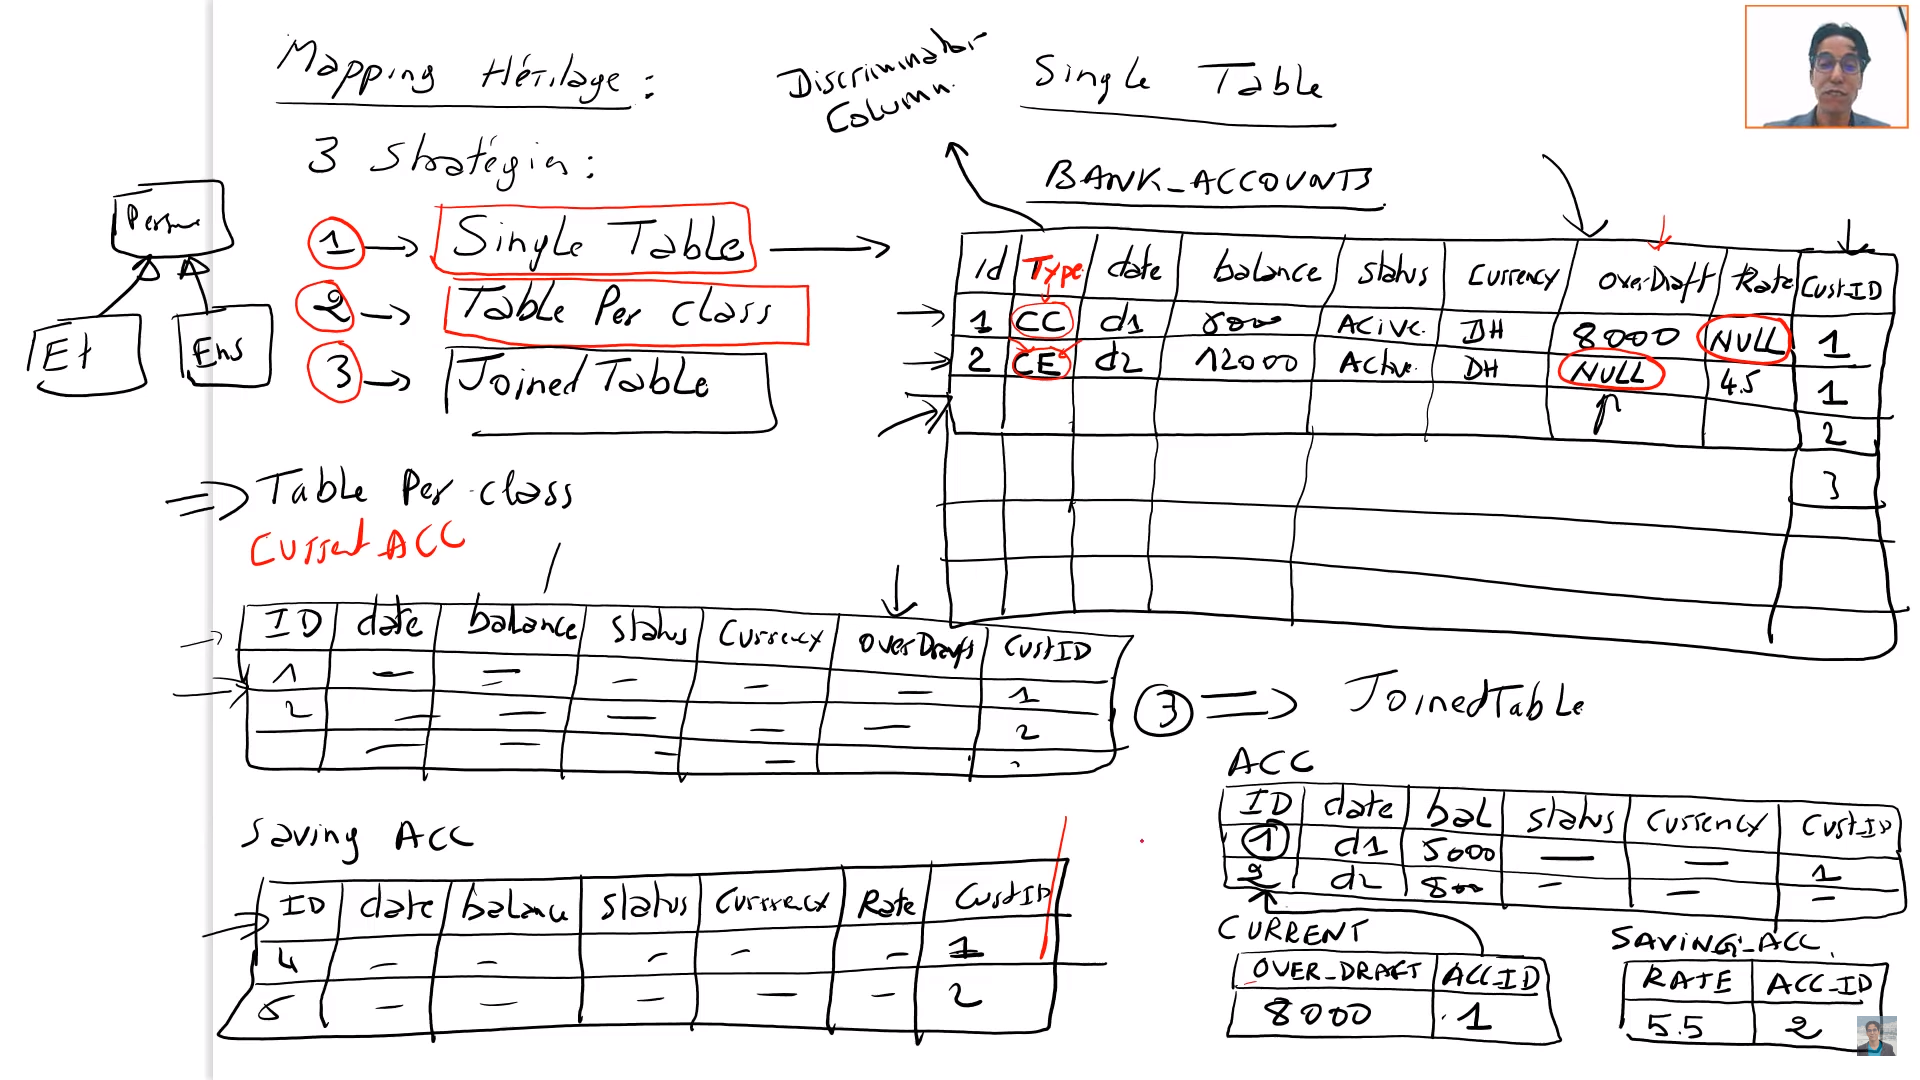 Mapping Héritage :
3 Stratégies :
Personne
Et
Ens
1 → Single Table
2 → Table Per class
3 → Joined Table
Discriminator
Column
Single Table
BANK_ACCOUNTS
Id Type date balance status Currency overDraft Rate Cust_ID
1 CC d1 8000 Active DH 8000 NULL 1
2 CE d2 12000 Active DH NULL 4.5 1
2
3
=> Table Per class
Current ACC
ID date balance status Currency overDraft CustID
1 1
2 2
Saving ACC
ID date balance status Currency Rate CustID
4 1
5 2
3 => JoinedTable
ACC
ID date bal status Currency Cust_ID
1 d1 5000 1
2 d2 800
CURRENT
OVER_DRAFT ACC_ID
8000 1
SAVING_ACC
RATE ACC_ID
5.5 2